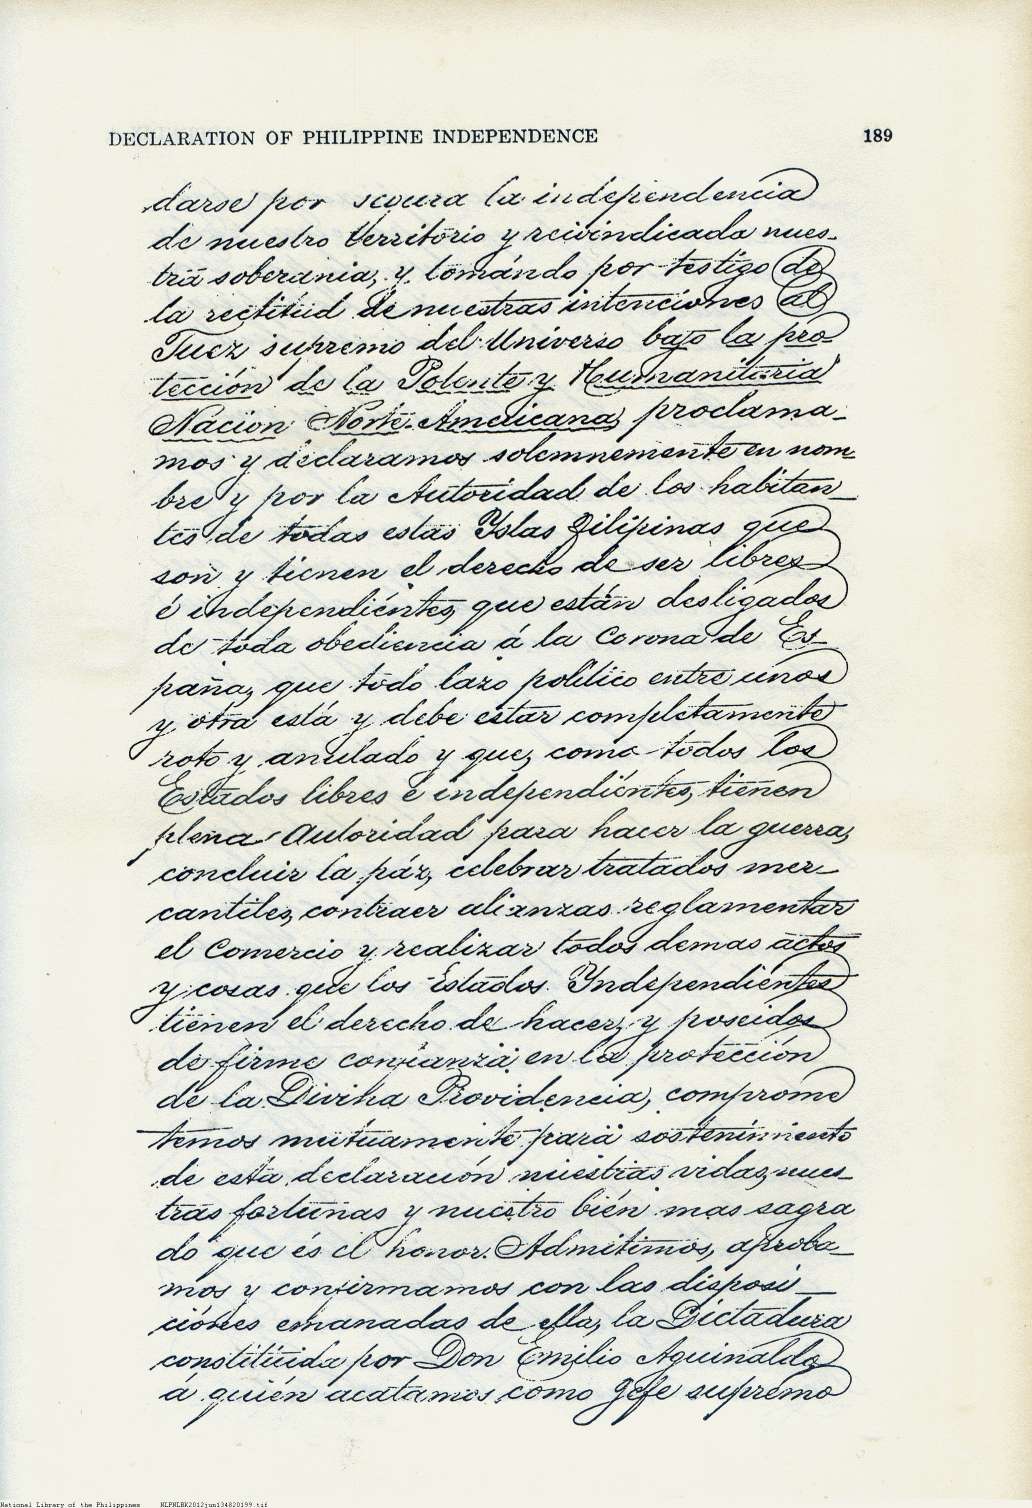 DECLARATION OF PHILIPPINE INDEPENDENCE 189
darse por segura la independencia
de nuestro territorio y reivindicada nues-
tra soberania, y tomándo por testigo de
la rectitúd de nuestras intenciones al
Juez supremo del Universo bajo la pro
tección de la Potente y Humanitaria
Nación Norte-Americana, proclama-
mos y declaramos solemnemente en nom-
bre y por la Autoridad de los habitan-
tes de todas estas Yslas Filipinas que
son y tienen el derecho de ser libres
é independiéntes, que están desligados
de toda obediencia á la Corona de Es-
paña, que todo lazo político entre unos
y otra está y debe estar completamente
roto y anulado y que, como todos los
Estados libres é independiéntes, tienen
plena Autoridad para hacer la guerra,
concluir la páz, celebrar tratados mer-
cantiles, contraer alianzas reglamentar
el Comercio y realizar todos demas actos
y cosas que los Estados Yndependiéntes
tienen el derecho de hacer, y poseidos
de firme confianza en la protección
de la Divina Providencia, comprome
temos mutuamente para sostenimiento
de esta declaración nuestras vidas, nues-
tras fortunas y nuestro bién mas sagra
do que és el honor. Admitimos, aproba-
mos y confirmamos con las disposi-
ciónes emanadas de ella, la Dictadura
constituida por Don Emilio Aguinaldo
á quién acatamos como Gefe supremo
National Library of the Philippines NLPNLBK2012jun134820199.tif